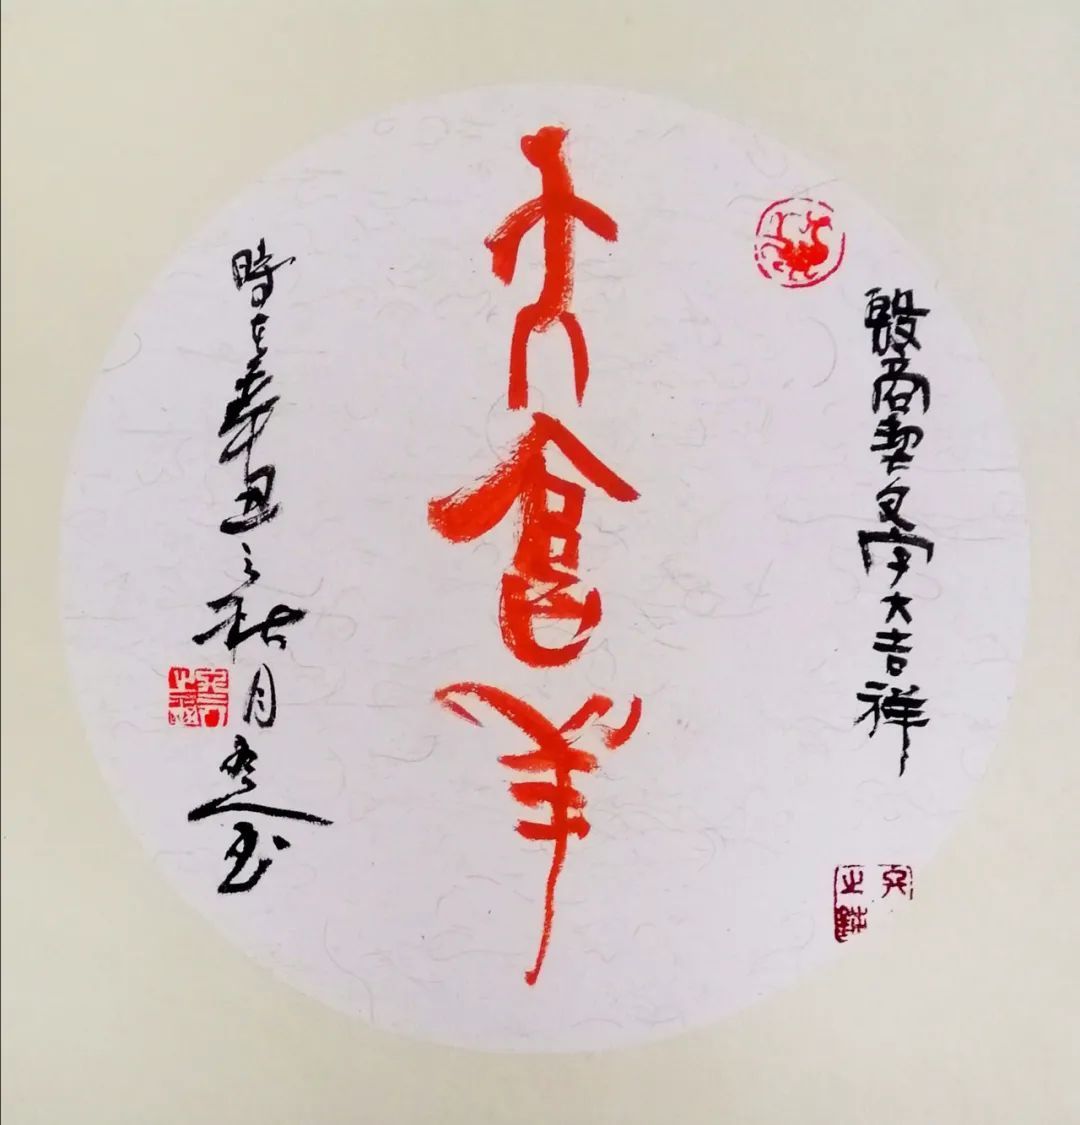 殷商契文字大吉祥
大吉羊
時在辛丑之秋月